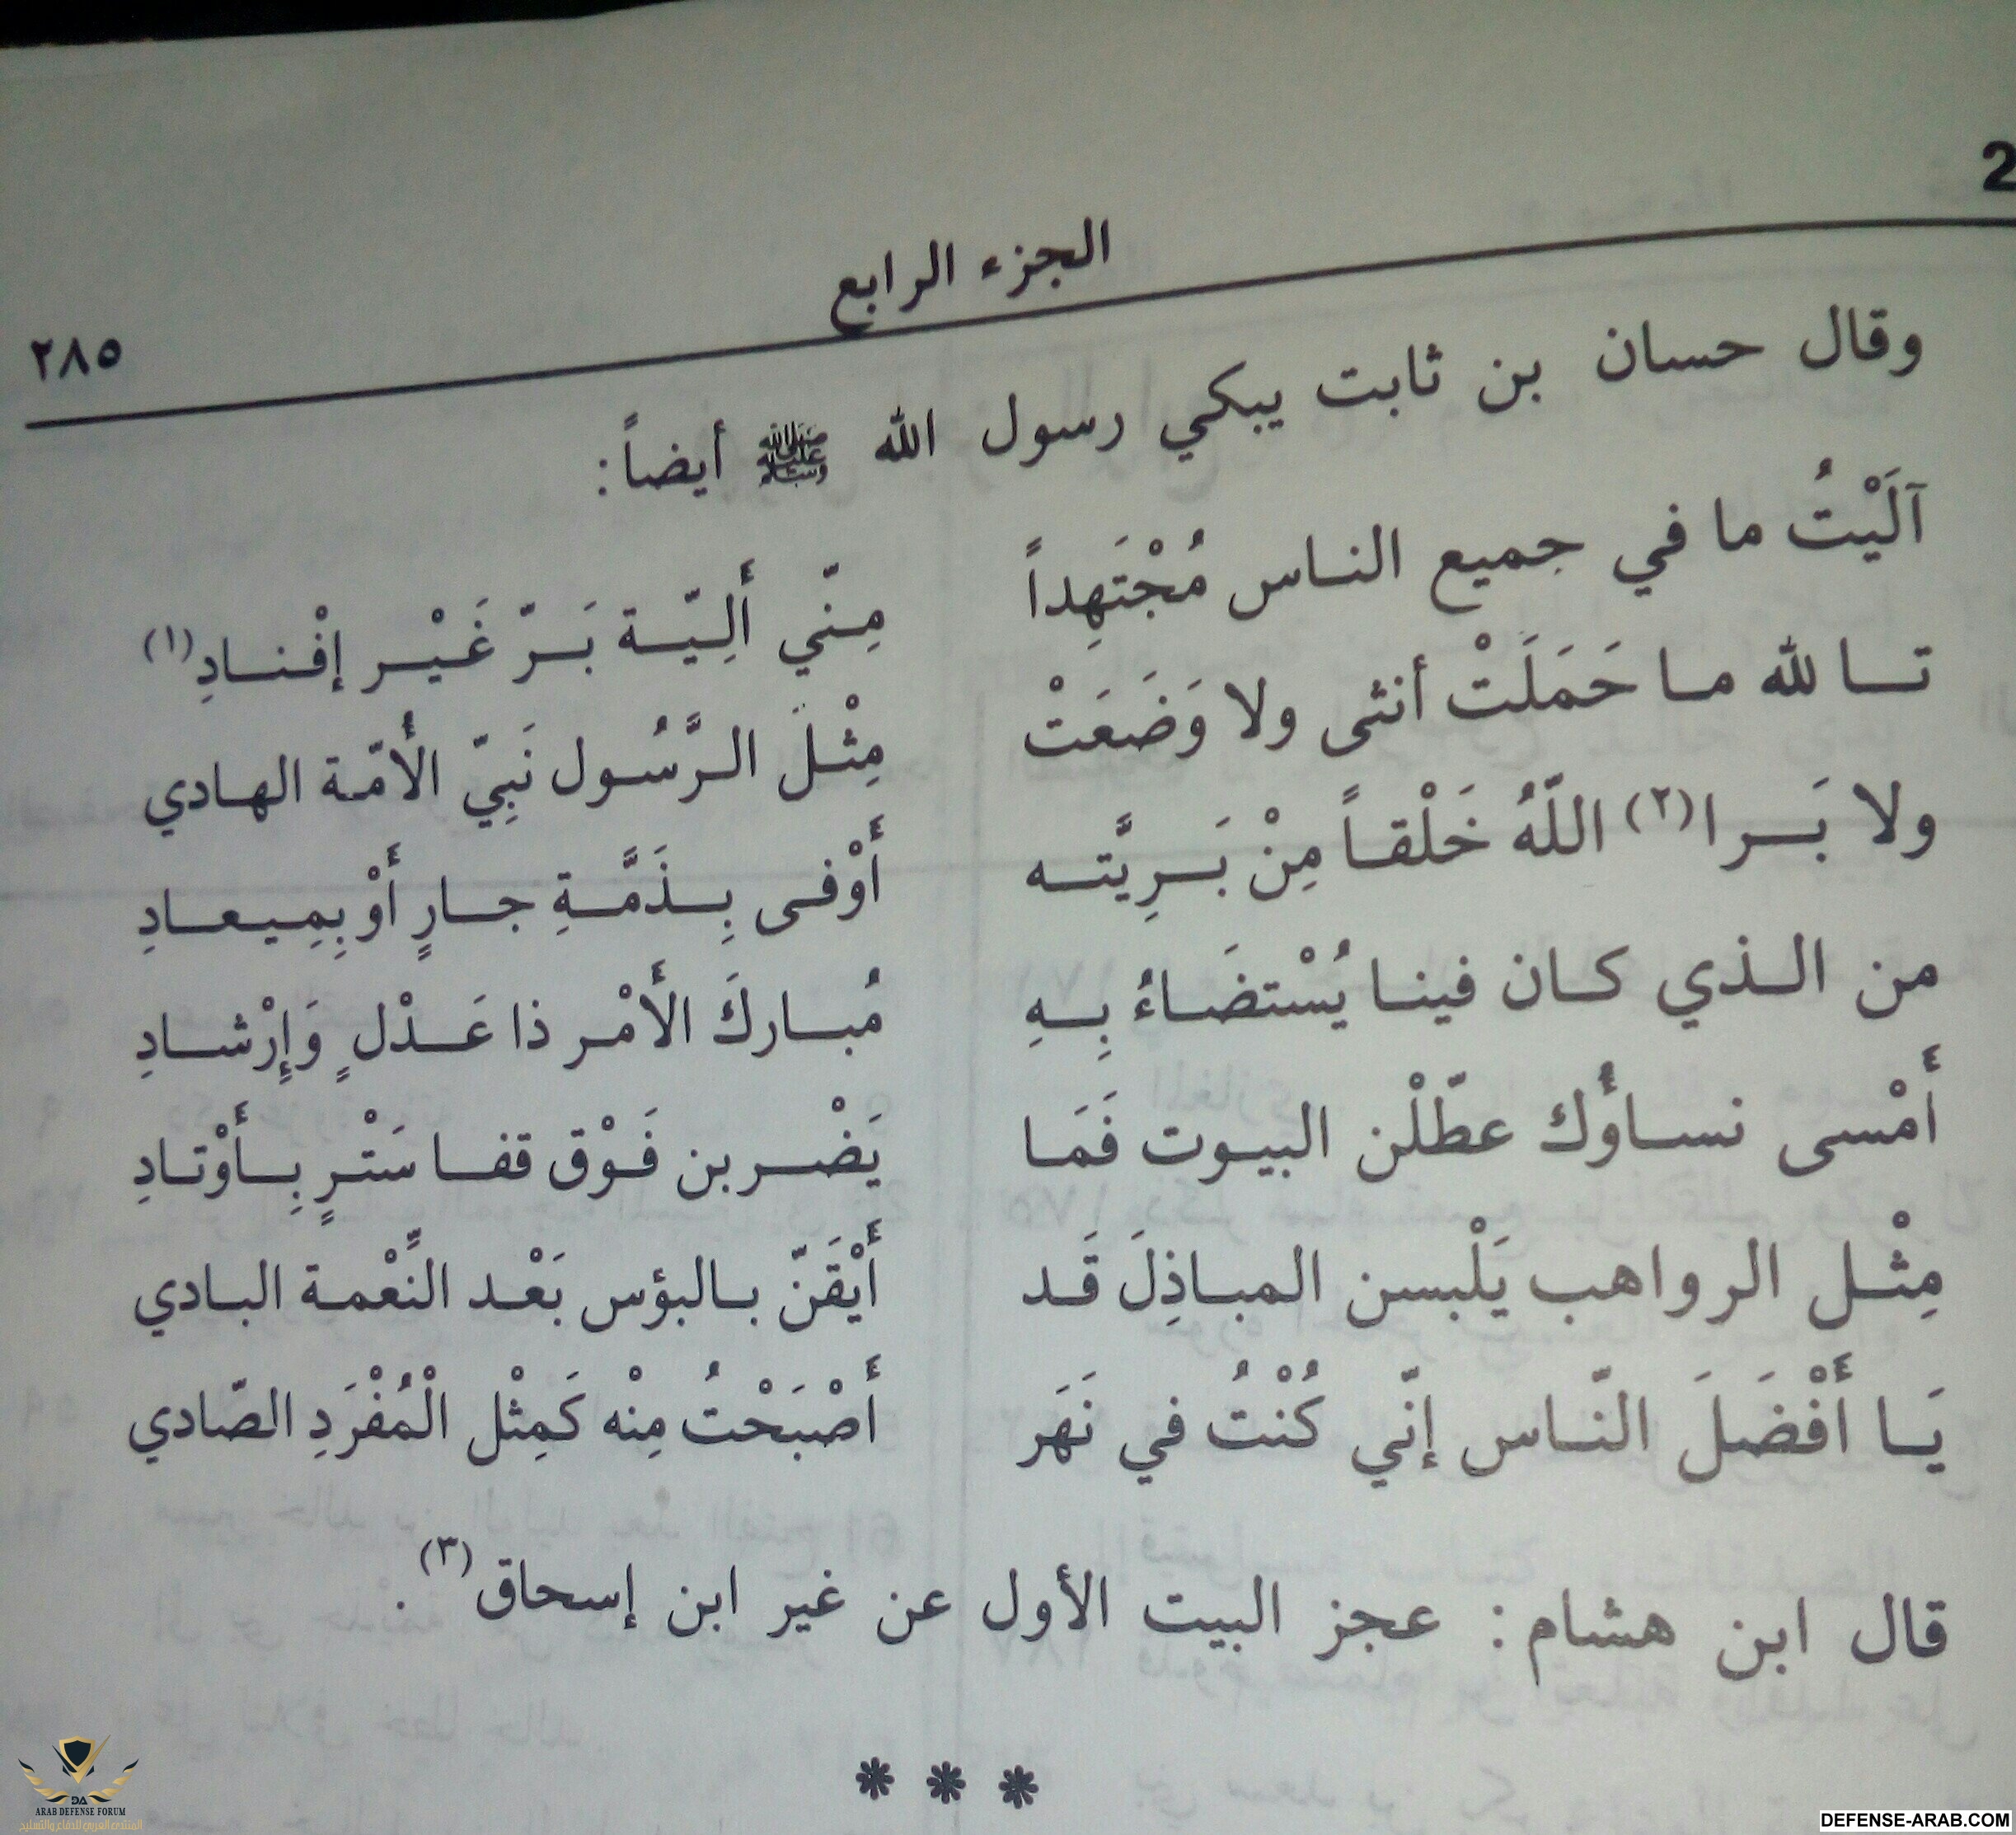 2
الجزء الرابع
٢٨٥
وقال حسان بن ثابت يبكي رسول الله ﷺ أيضاً:
آلَيْتُ ما في جميع الناس مُجْتَهِداً مِنّي أَلِيّة بَرّ غَيْر إفْنادِ(١)
تالله ما حَمَلَتْ أنثى ولا وَضَعَتْ مِثْلَ الرَّسُول نَبِيّ الْأُمّة الهادي
ولا بَرا(٢) اللّهُ خَلْقاً مِنْ بَرِيَّته أَوْفى بِذَمَّةِ جارٍ أَوْ بِمِيعادِ
من الذي كان فينا يُسْتضَاءُ بِهِ مُباركَ الأَمْر ذا عَدْلٍ وَإِرْشادِ
أَمْسى نساؤُك عطّلْن البيوت فَمَا يَضْربن فَوْق قفا سَتْرٍ بِأَوْتادِ
مِثْل الرواهب يَلْبسن المباذِلَ قَد أَيْقَنّ بالبؤس بَعْد النِّعْمة البادي
يَا أَفْضَلَ النّاس إنّي كُنْتُ في نَهَر أَصْبَحْتُ مِنْه كَمِثْل الْمُفْرَدِ الصّادي
قال ابن هشام: عجز البيت الأول عن غير ابن إسحاق(٣).
* * *
ARAB DEFENSE FORUM
المنتدى العربي للدفاع والتسليح
DEFENSE-ARAB.COM